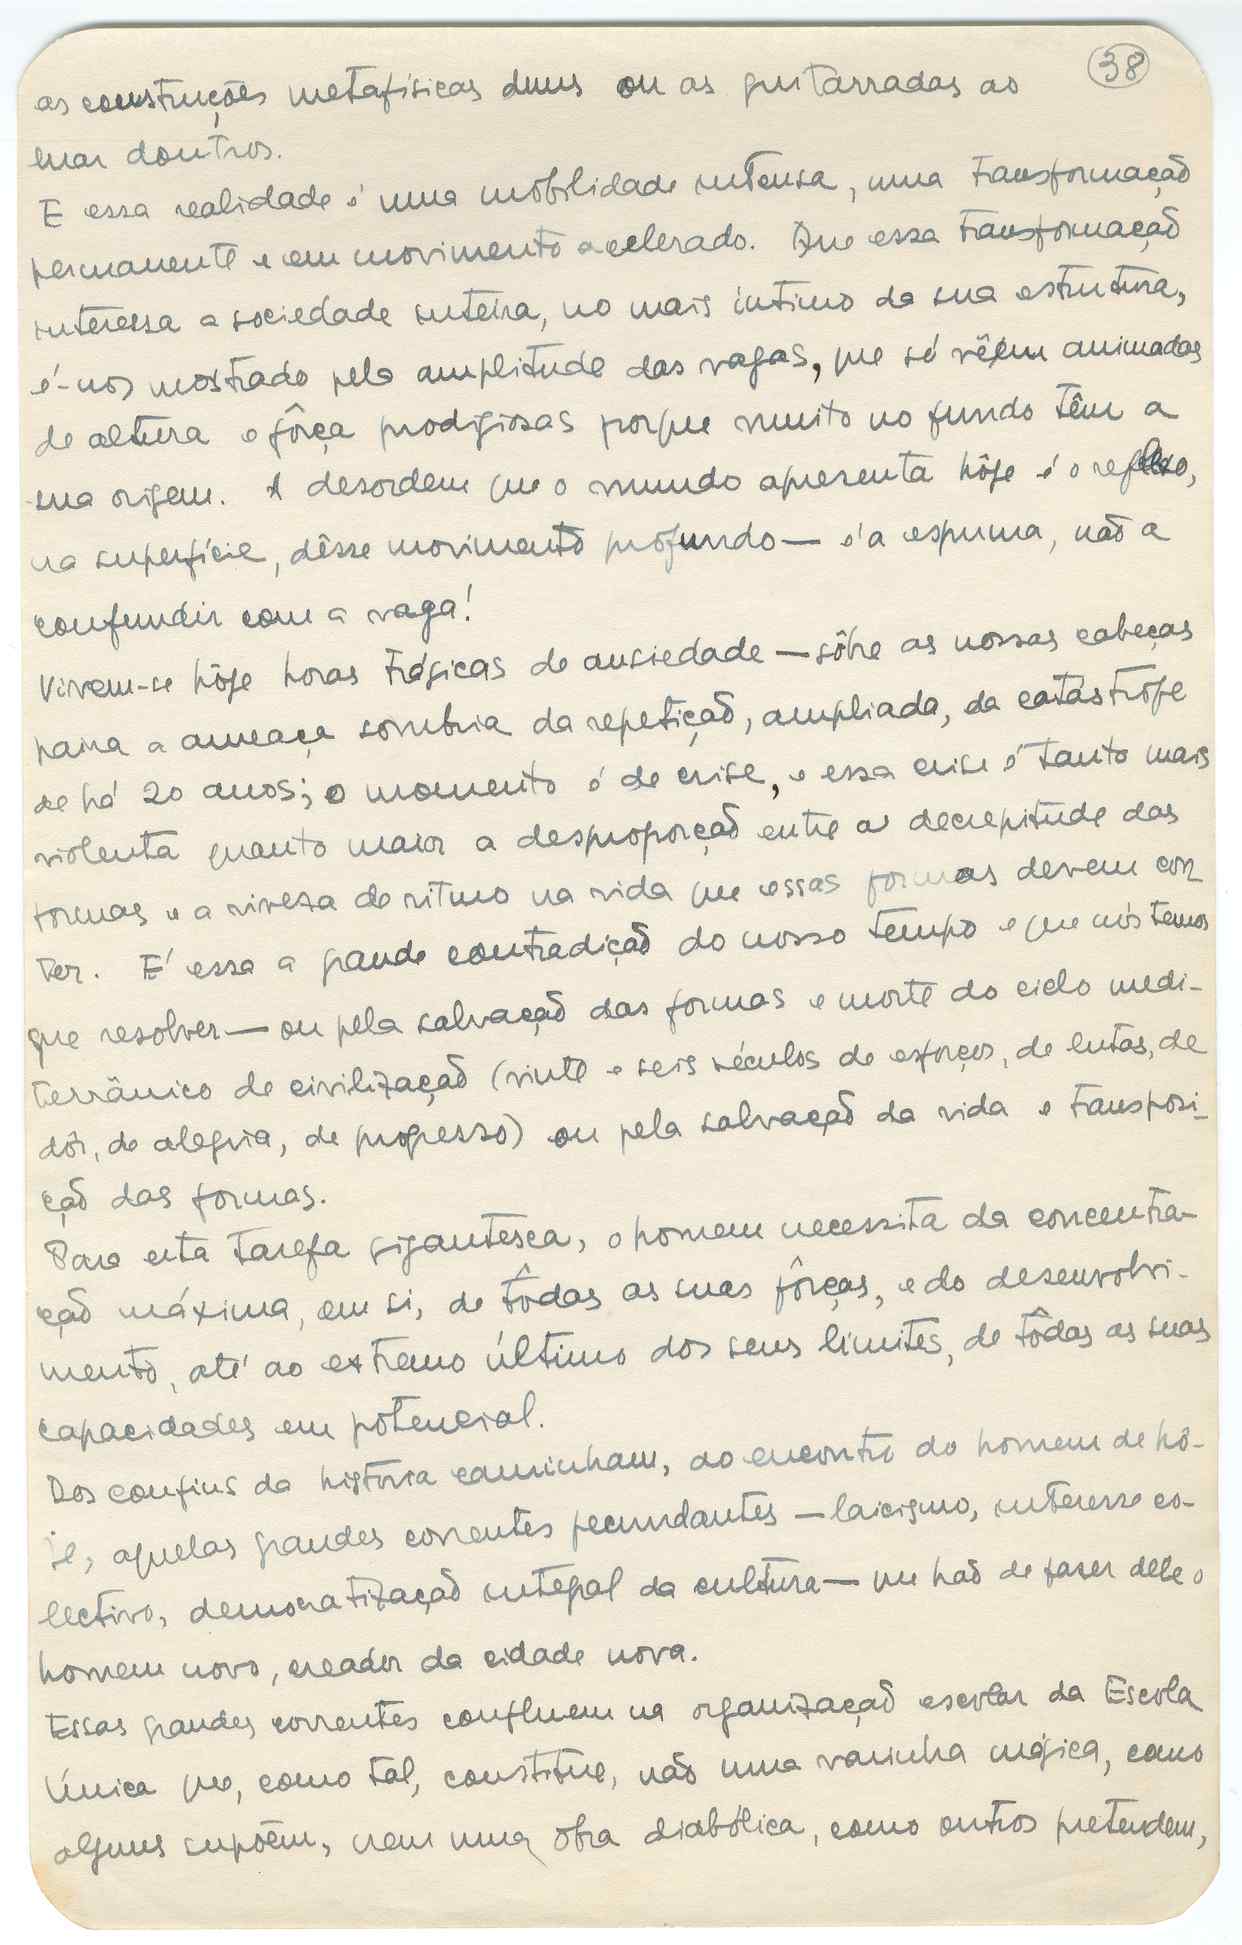 38
as construções metafísicas duns ou as guitarradas ao
mar doutros.
E essa realidade é uma mobilidade intensa, uma transformação
permanente e em movimento acelerado. Que essa transformação
interessa a sociedade inteira, no mais íntimo da sua estrutura,
é-nos mostrado pela amplitude das vagas, que só vêem animadas
de altura e fôrça prodigiosas porque muito no fundo têm a
sua origem. A desordem que o mundo apresenta hôje é o reflexo,
na superfície, dêsse movimento profundo — é a espuma, não a
confundir com a vaga!
Vivem-se hôje horas trágicas de ansiedade — sôbre as nossas cabeças
paira a ameaça sombria da repetição, ampliada, da catástrofe
de há 20 anos; o momento é de crise, e essa crise é tanto mais
violenta quanto maior a desproporção entre a decrepitude das
formas e a viveza de ritmo na vida que essas formas devem con
ter. É essa a grande contradição do nosso tempo e que nós temos
que resolver — ou pela salvação das formas e morte do ciclo medi-
terrânico de civilização (vinte e seis séculos de esforços, de lutas, de
dôr, de alegria, de progresso) ou pela salvação da vida e transposi-
ção das formas.
Para esta tarefa gigantesca, o homem necessita da concentra-
ção máxima, em si, de tôdas as suas fôrças, e do desenvolvi-
mento, até ao extremo último dos seus limites, de tôdas as suas
capacidades em potencial.
Dos confins da história caminham, ao encontro do homem de hô-
je, aquelas grandes correntes fecundantes — laicismo, interesse co-
lectivo, democratização integral da cultura — que hão de fazer dele o
homem novo, creador da cidade nova.
Essas grandes correntes confluem na organização escolar da Escola
Única que, como tal, constitue, não uma varinha mágica, como
alguns supõem, nem uma obra diabólica, como outros pretendem,